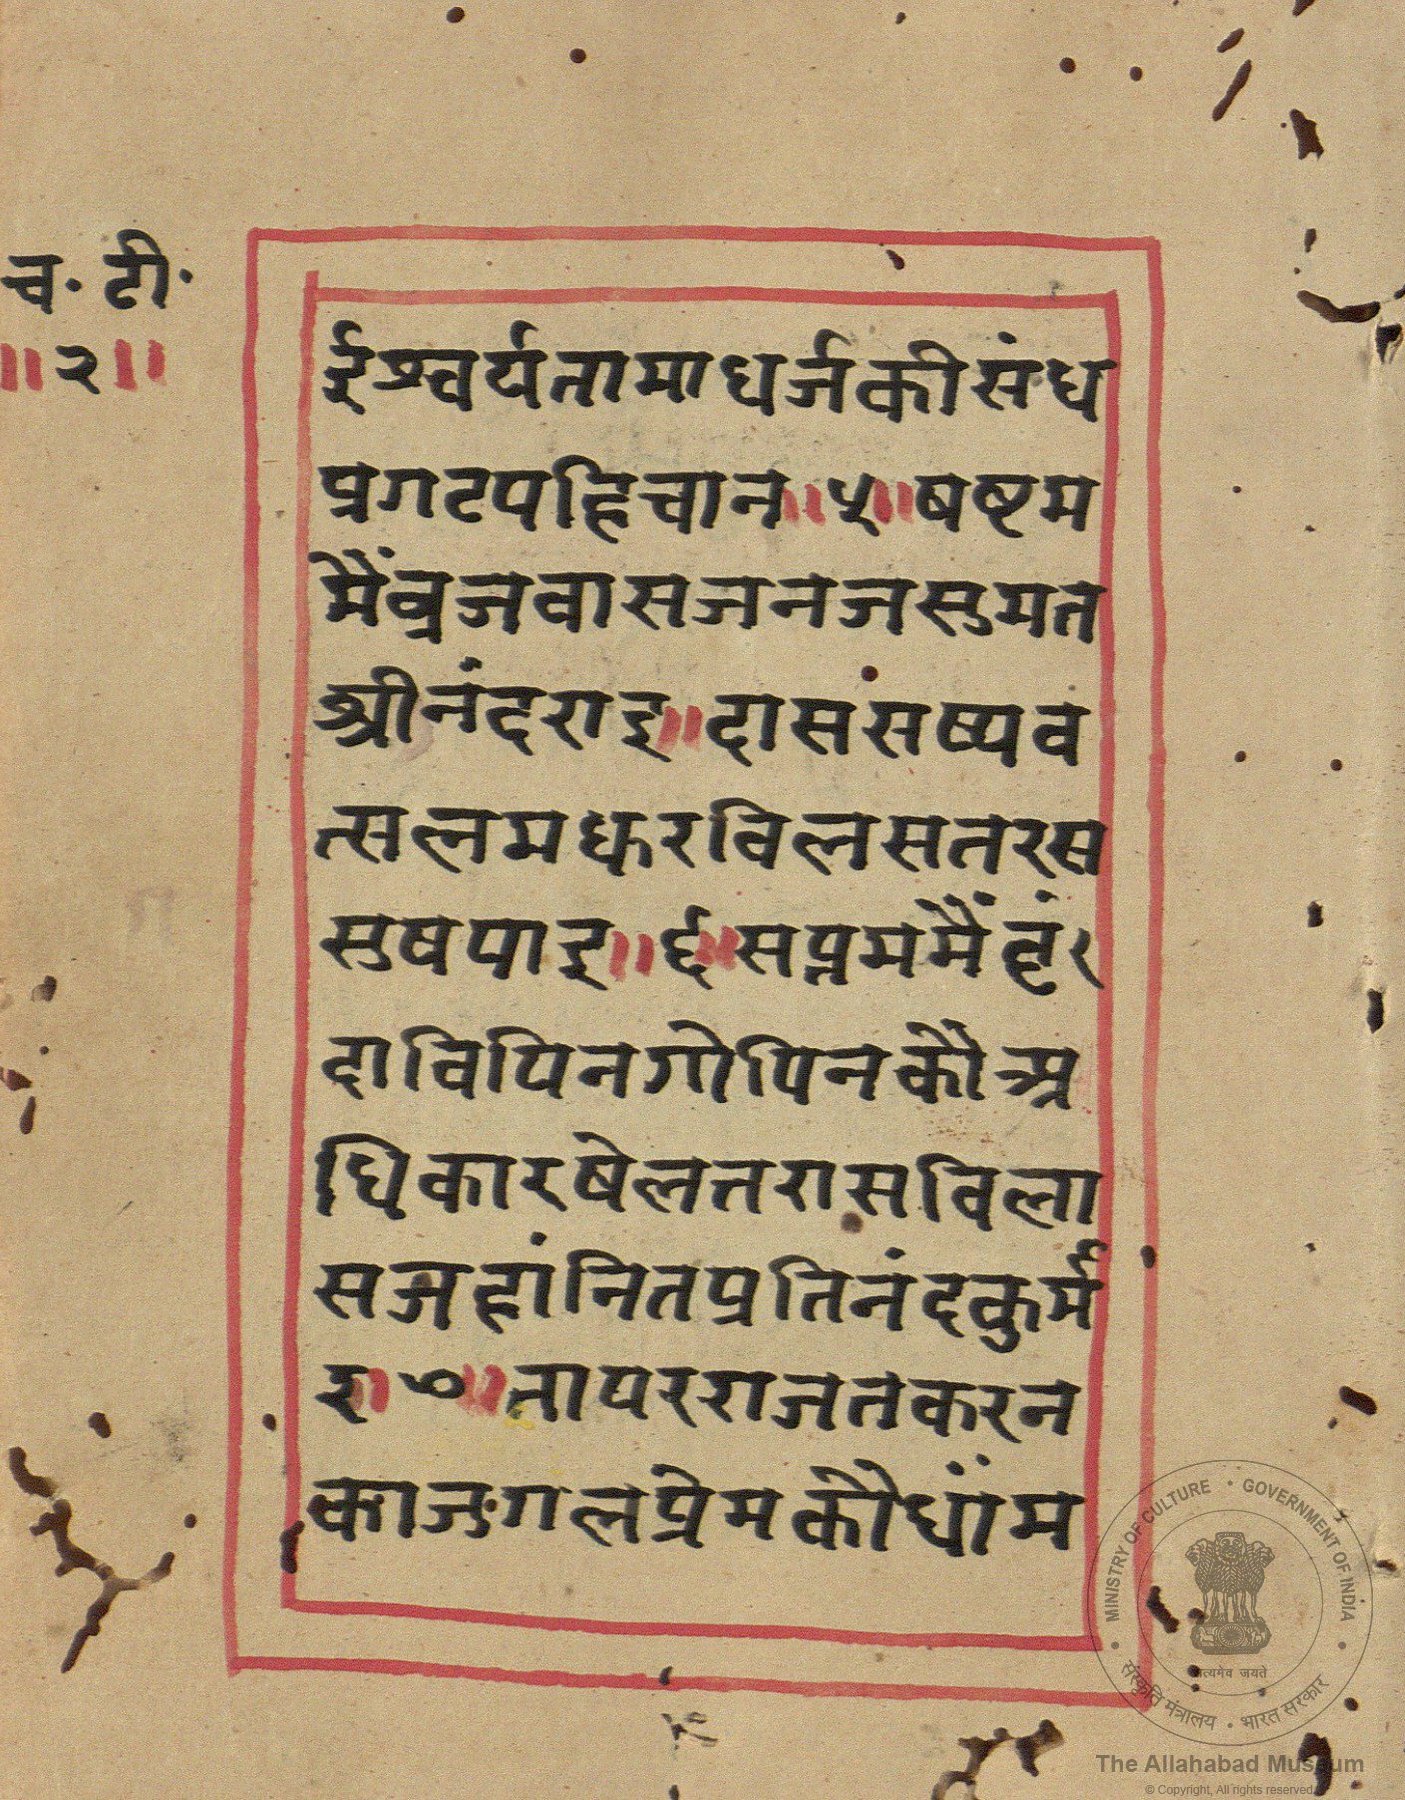 च॰ टी॰
॥२॥
ईश्वर्यतामाधर्जकीसंध
प्रगटपहिचान॥५॥षष्टम
मैंव्रजवासजनजसुमत
श्रीनंदराइ॥दाससंष्यव
त्सलमधुरविलसतरस
सुषपाइ॥६॥सप्तममैंवृं
दाविपिनगोपिनकौअ
धिकारषेलतरासविला
सजहांनितप्रतिनंदकुर्म
इ॥७॥तापरराजतकरन
काजुगलप्रेमकौधांम
MINISTRY OF CULTURE • GOVERNMENT OF INDIA
सत्यमेव जयते
संस्कृति मंत्रालय • भारत सरकार
The Allahabad Museum
© Copyright, All rights reserved.